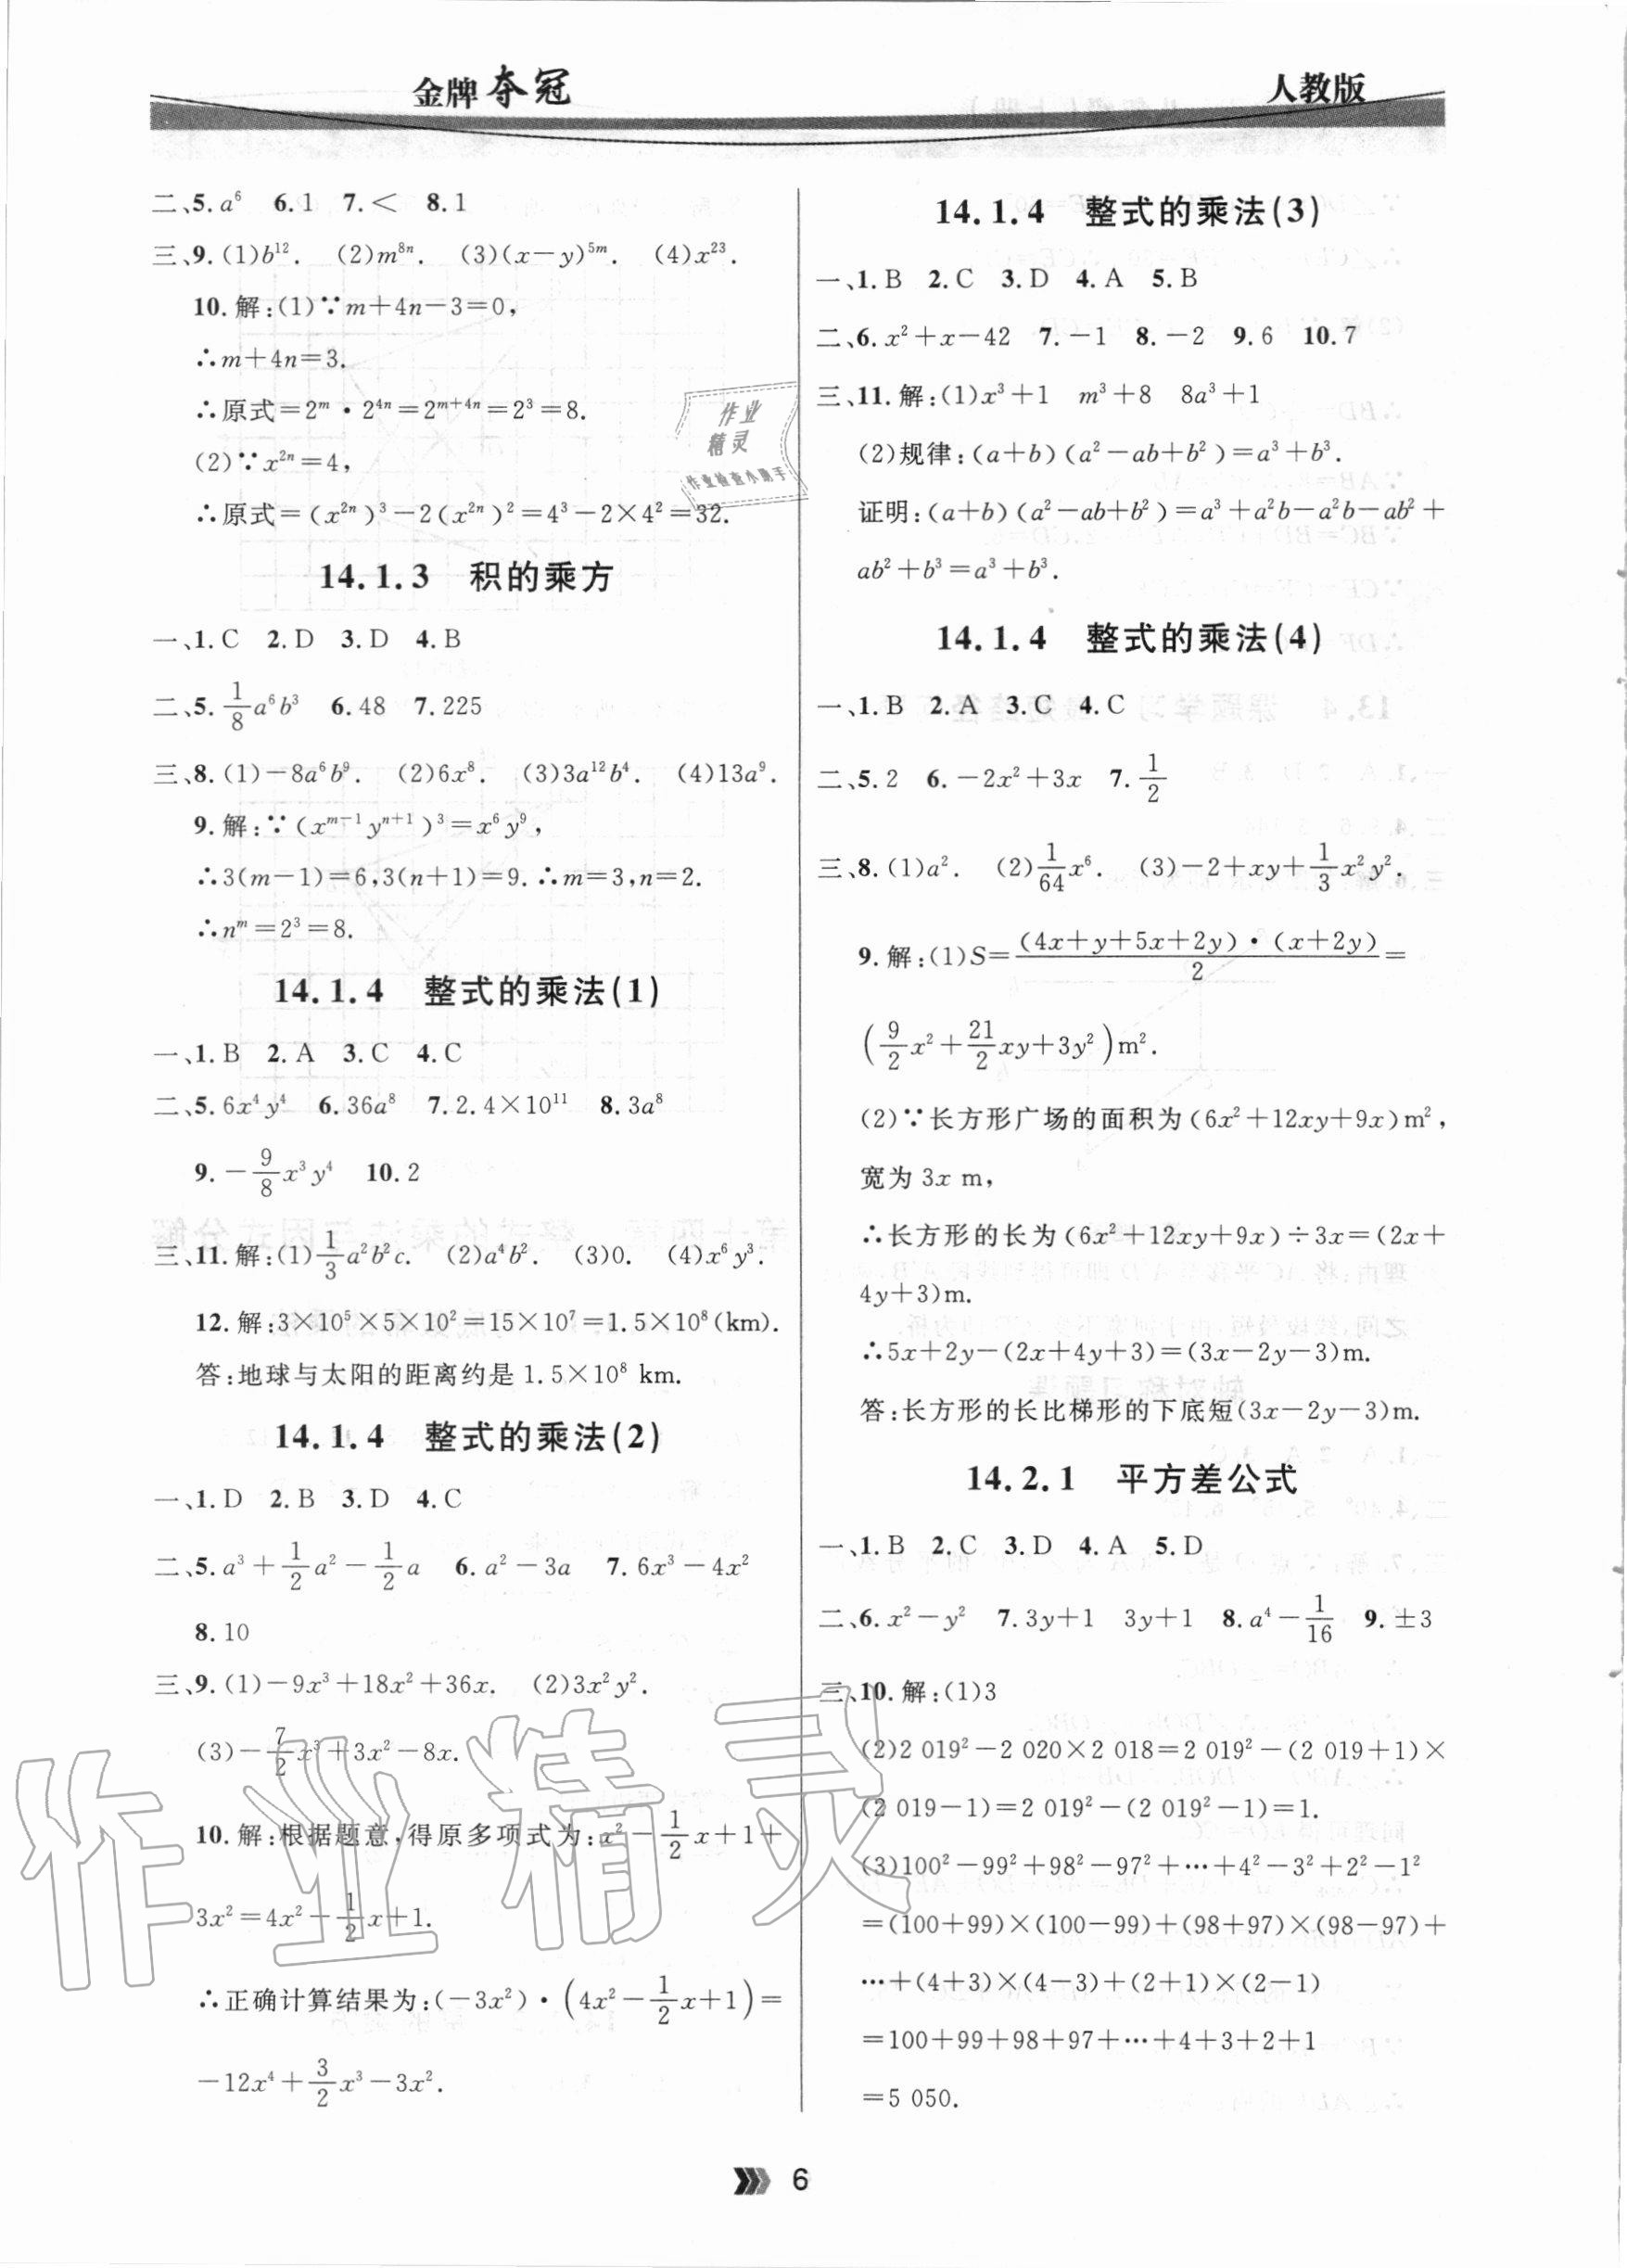 金牌夺冠
人教版
二、5. a⁶ 6. 1 7. < 8. 1
三、9. (1)b¹². (2)m⁸ⁿ. (3)(x−y)⁵ᵐ. (4)x²³.
10. 解:(1)∵m+4n−3=0,
∴m+4n=3.
∴原式=2ᵐ·2⁴ⁿ=2ᵐ⁺⁴ⁿ=2³=8.
(2)∵x²ⁿ=4,
∴原式=(x²ⁿ)³−2(x²ⁿ)²=4³−2×4²=32.
14.1.3 积的乘方
一、1. C 2. D 3. D 4. B
二、5. 1/8 a⁶b³ 6. 48 7. 225
三、8. (1)−8a⁶b⁹. (2)6x⁸. (3)3a¹²b⁴. (4)13a⁹.
9. 解:∵(xᵐ⁻¹yⁿ⁺¹)³=x⁶y⁹,
∴3(m−1)=6,3(n+1)=9. ∴m=3,n=2.
∴nᵐ=2³=8.
14.1.4 整式的乘法(1)
一、1. B 2. A 3. C 4. C
二、5. 6x⁴y⁴ 6. 36a⁸ 7. 2.4×10¹¹ 8. 3a⁸
9. −9/8 x³y⁴ 10. 2
三、11. 解:(1)1/3 a²b²c. (2)a⁴b². (3)0. (4)x⁶y³.
12. 解:3×10⁵×5×10²=15×10⁷=1.5×10⁸(km).
答:地球与太阳的距离约是1.5×10⁸ km.
14.1.4 整式的乘法(2)
一、1. D 2. B 3. D 4. C
二、5. a³+1/2 a²−1/2 a 6. a²−3a 7. 6x³−4x²
8. 10
三、9. (1)−9x³+18x²+36x. (2)3x²y².
(3)−7/2 x³+3x²−8x.
10. 解:根据题意,得原多项式为:x²−1/2 x+1+
3x²=4x²−1/2 x+1.
∴正确计算结果为:(−3x²)·(4x²−1/2 x+1)=
−12x⁴+3/2 x³−3x².
14.1.4 整式的乘法(3)
一、1. B 2. C 3. D 4. A 5. B
二、6. x²+x−42 7. −1 8. −2 9. 6 10. 7
三、11. 解:(1)x³+1 m³+8 8a³+1
(2)规律:(a+b)(a²−ab+b²)=a³+b³.
证明:(a+b)(a²−ab+b²)=a³+a²b−a²b−ab²+
ab²+b³=a³+b³.
14.1.4 整式的乘法(4)
一、1. B 2. A 3. C 4. C
二、5. 2 6. −2x²+3x 7. 1/2
三、8. (1)a². (2)1/64 x⁶. (3)−2+xy+1/3 x²y².
9. 解:(1)S=(4x+y+5x+2y)·(x+2y)/2=
(9/2 x²+21/2 xy+3y²)m².
(2)∵长方形广场的面积为(6x²+12xy+9x)m²,
宽为3x m,
∴长方形的长为(6x²+12xy+9x)÷3x=(2x+
4y+3)m.
∴5x+2y−(2x+4y+3)=(3x−2y−3)m.
答:长方形的长比梯形的下底短(3x−2y−3)m.
14.2.1 平方差公式
一、1. B 2. C 3. D 4. A 5. D
二、6. x²−y² 7. 3y+1 3y+1 8. a⁴−1/16 9. ±3
三、10. 解:(1)3
(2)2 019²−2 020×2 018=2 019²−(2 019+1)×
(2 019−1)=2 019²−(2 019²−1)=1.
(3)100²−99²+98²−97²+⋯+4²−3²+2²−1²
=(100+99)×(100−99)+(98+97)×(98−97)+
⋯+(4+3)×(4−3)+(2+1)×(2−1)
=100+99+98+97+⋯+4+3+2+1
=5 050.
6
作业
精灵
作业检查小助手
作业精灵